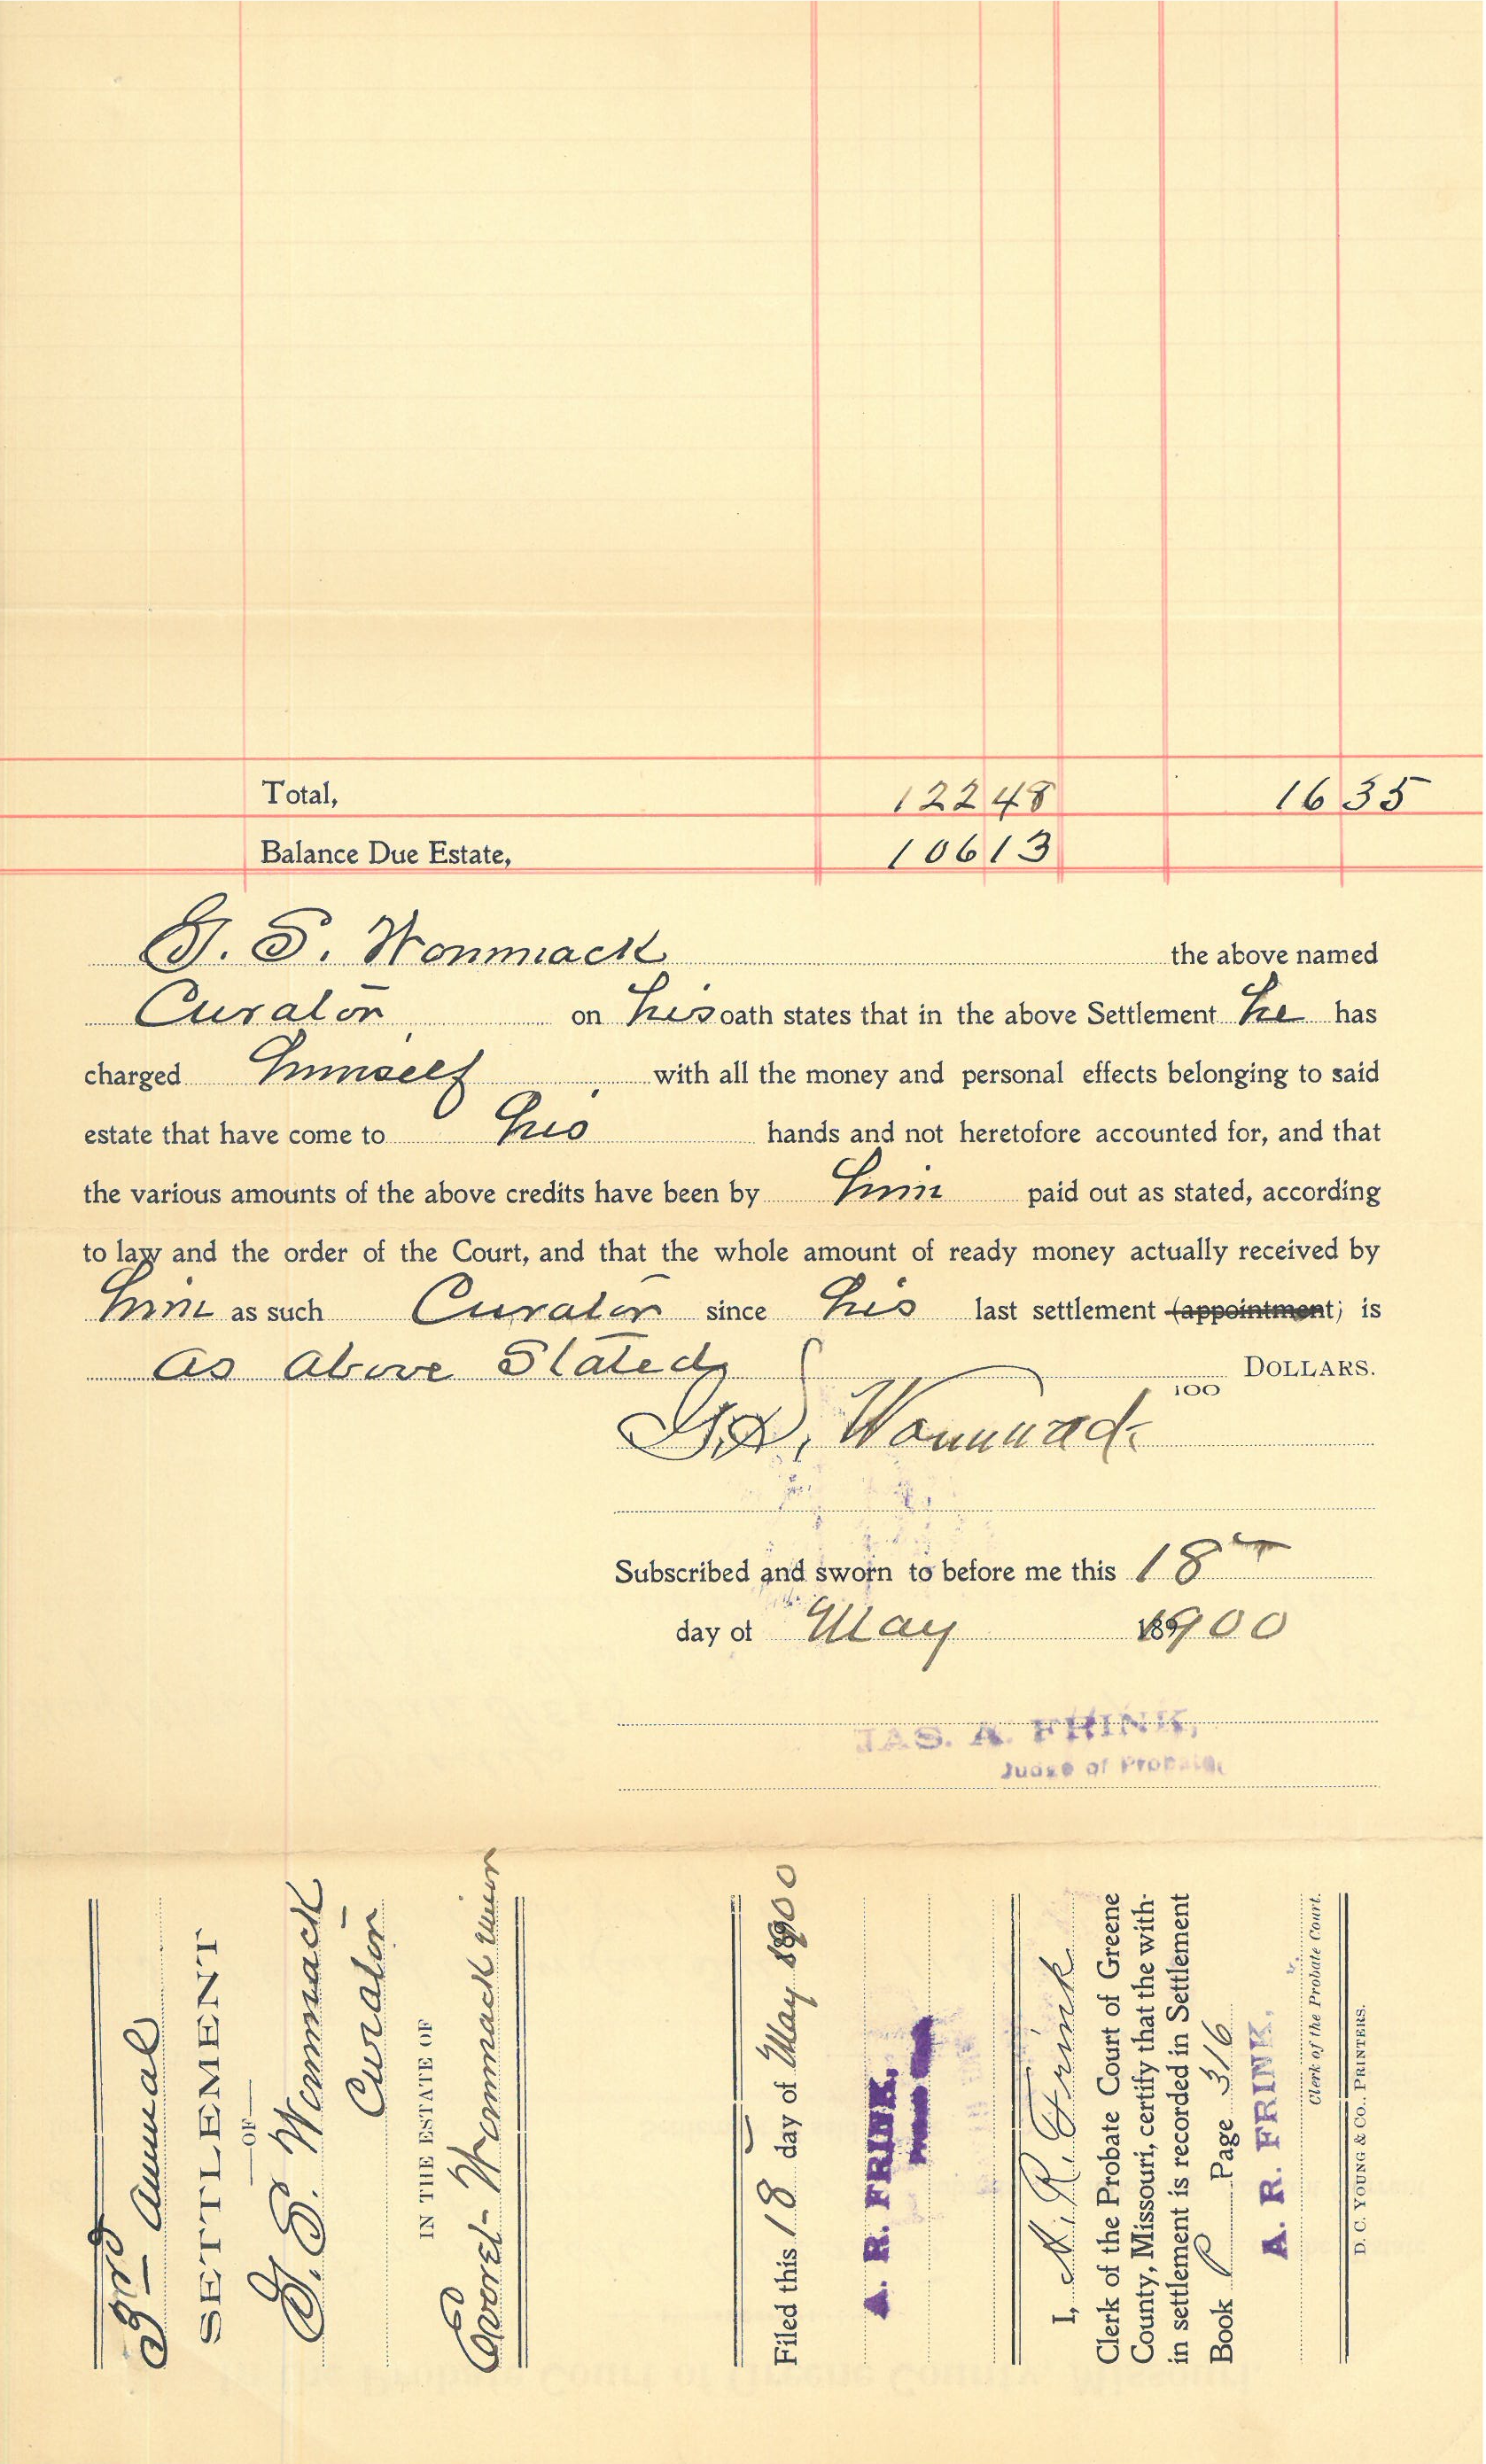 Total, 122 48 16 35
Balance Due Estate, 106 13
G. S. Wommack the above named
Curator on his oath states that in the above Settlement he has
charged himself with all the money and personal effects belonging to said
estate that have come to his hands and not heretofore accounted for, and that
the various amounts of the above credits have been by him paid out as stated, according
to law and the order of the Court, and that the whole amount of ready money actually received by
him as such Curator since his last settlement (appointment) is
as above Stated DOLLARS.
100
G. S. Wommack
Subscribed and sworn to before me this 18
day of May 1900
JAS. A. FRINK,
Judge of Probate
3rd Annual
SETTLEMENT
—OF—
G. S. Wommack
Curator
IN THE ESTATE OF
Everet Wommack minor
Filed this 18 day of May 1900
A. R. FRINK,
I, A. R. Frink
Clerk of the Probate Court of Greene
County, Missouri, certify that the with-
in settlement is recorded in Settlement
Book P Page 316
A. R. FRINK,
Clerk of the Probate Court.
D. C. YOUNG & CO., PRINTERS.